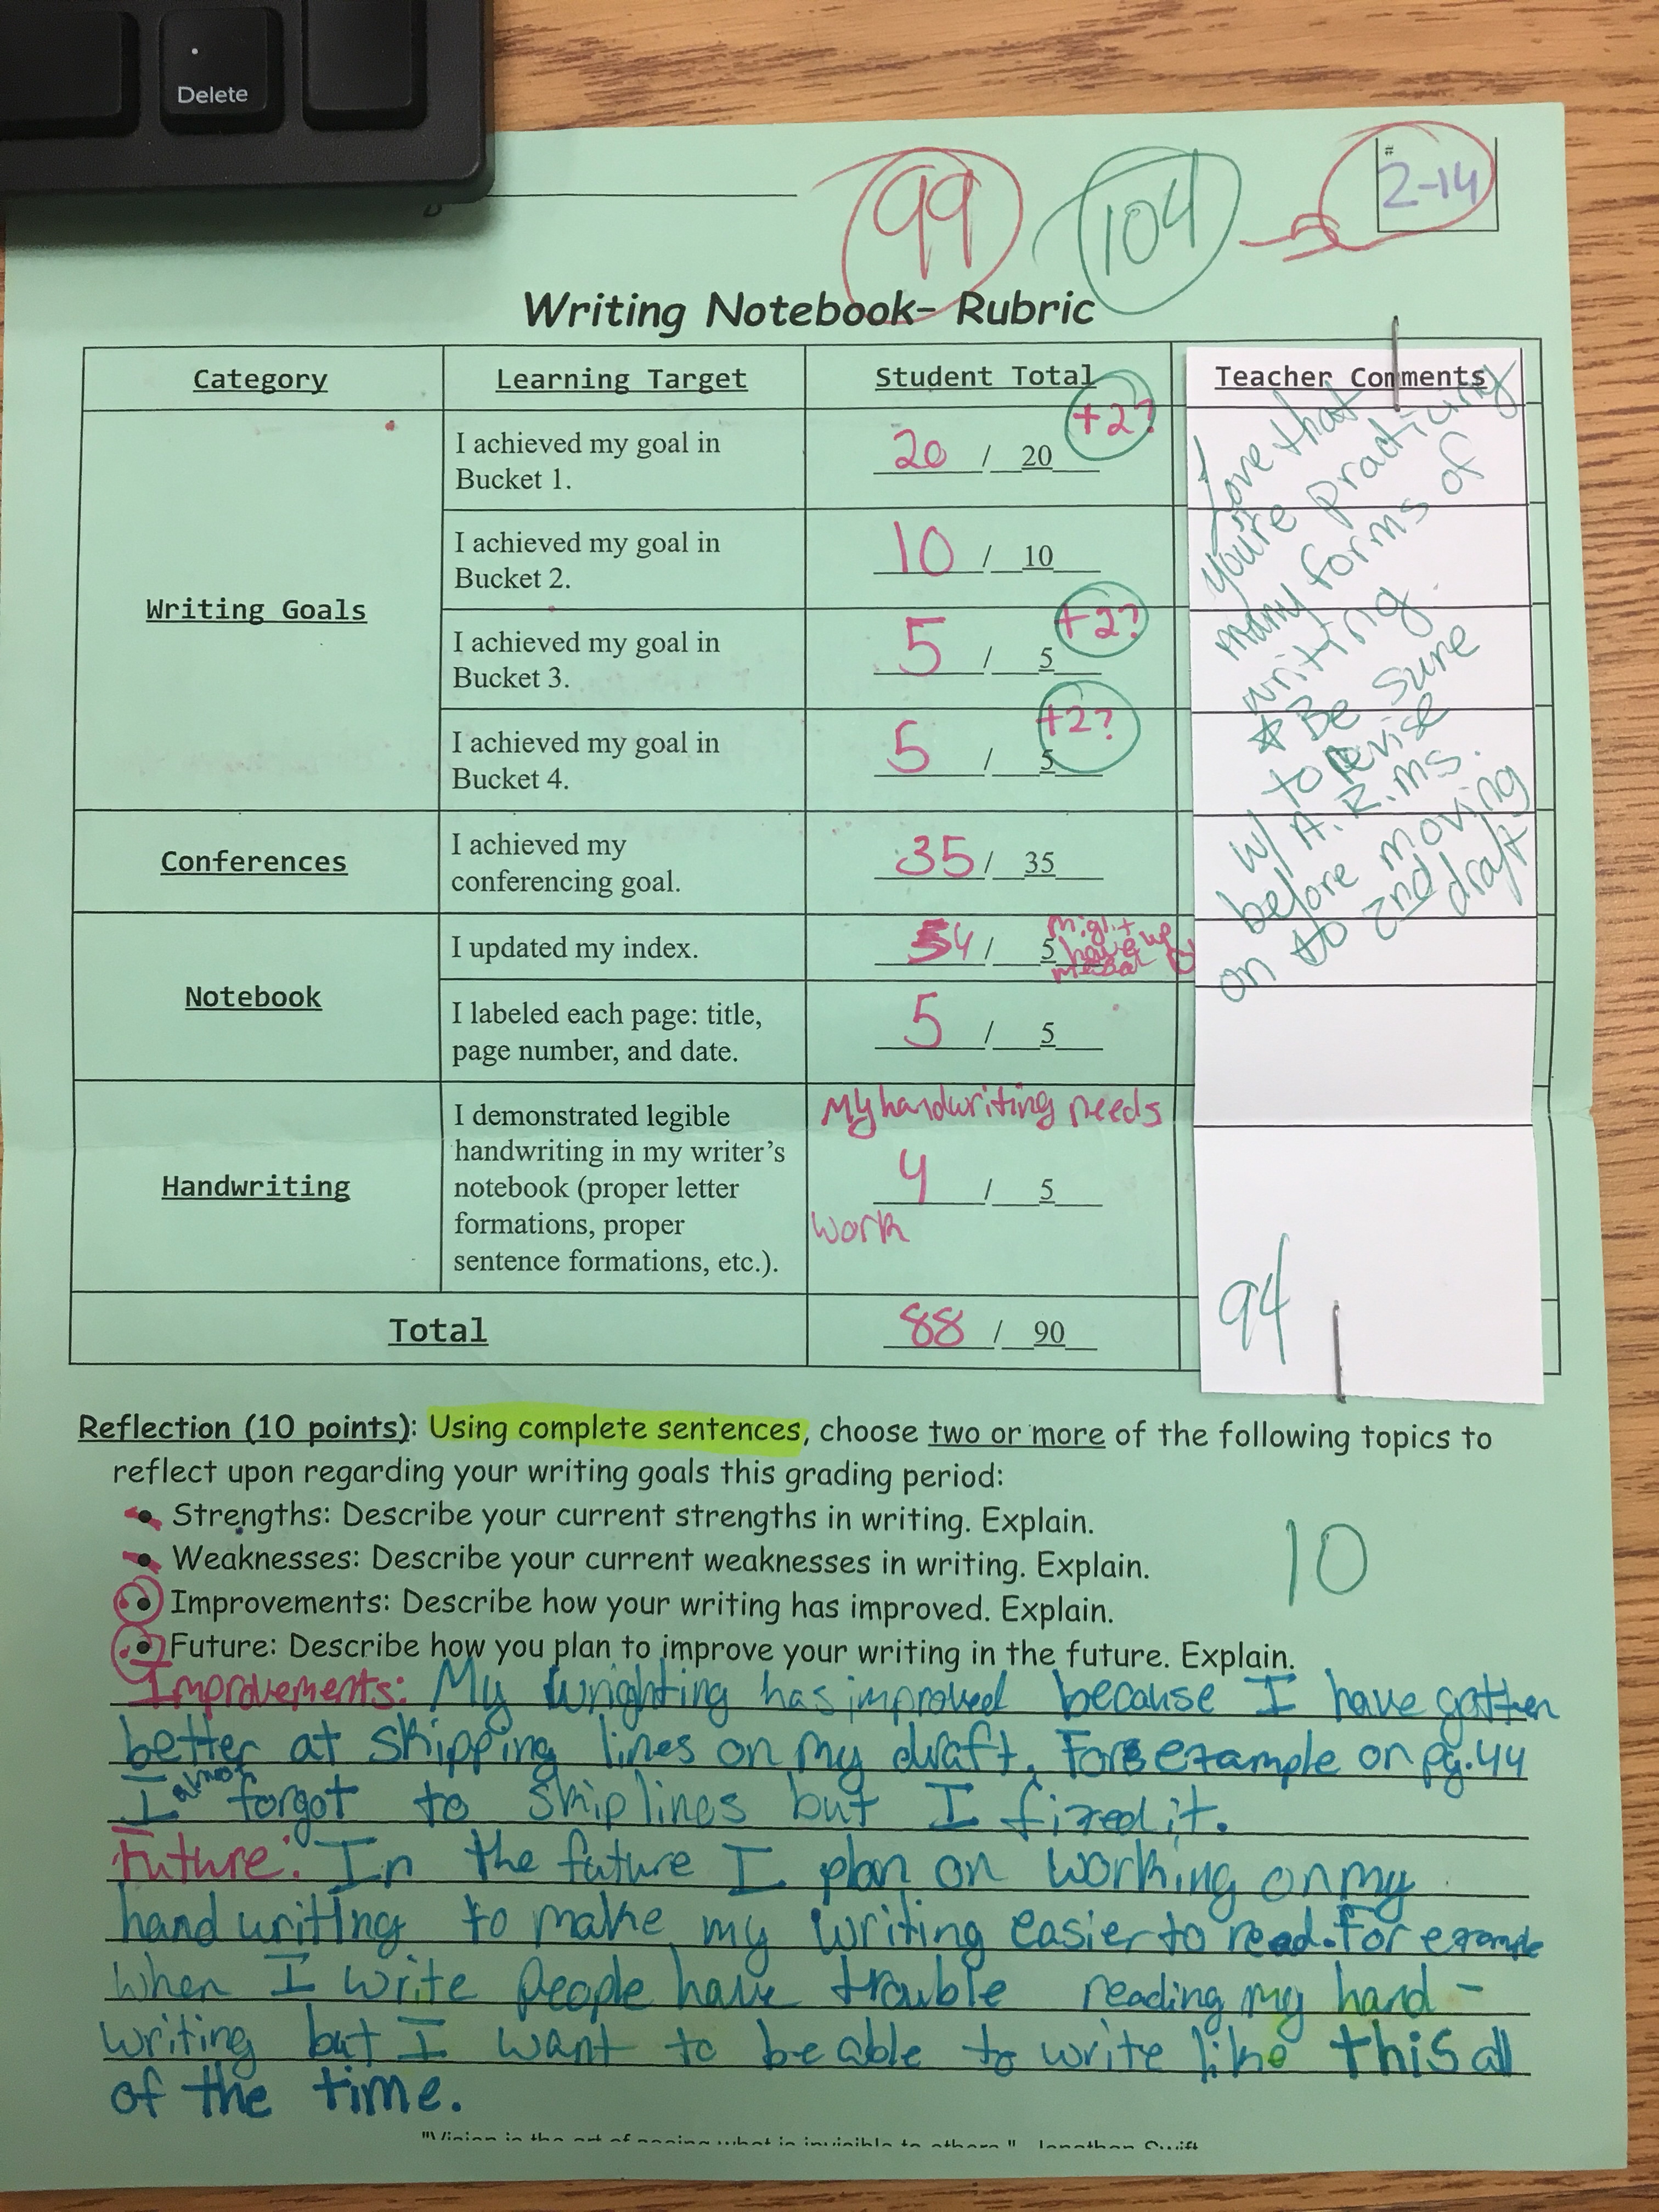 Delete
99
104
#
2-14
Writing Notebook- Rubric
Category
Learning Target
Student Total
Teacher Comments
Writing Goals
I achieved my goal in
Bucket 1.
20 / 20
+2?
I achieved my goal in
Bucket 2.
10 / 10
I achieved my goal in
Bucket 3.
5 / 5
+2?
I achieved my goal in
Bucket 4.
5 / 5
+2?
Conferences
I achieved my
conferencing goal.
35 / 35
Notebook
I updated my index.
4 / 5
might
have
I labeled each page: title,
page number, and date.
5 / 5
Handwriting
I demonstrated legible
handwriting in my writer's
notebook (proper letter
formations, proper
sentence formations, etc.).
My handwriting needs
4 / 5
work
Total
88 / 90
Love that
you're practicing
many forms of
writing.
* Be sure
to revise
w/ A.R.M.S.
before moving
on to 2nd draft
94
Reflection (10 points): Using complete sentences, choose two or more of the following topics to
reflect upon regarding your writing goals this grading period:
• Strengths: Describe your current strengths in writing. Explain.
• Weaknesses: Describe your current weaknesses in writing. Explain.
• Improvements: Describe how your writing has improved. Explain.
• Future: Describe how you plan to improve your writing in the future. Explain.
10
Improvements: My wrighting has improved because I have gotten
better at skipping lines on my draft. For example on pg. 44
I almost forgot to skip lines but I fixed it.
Future: In the future I plan on working on my
hand writing to make my writing easier to read. For example
when I write people have trouble reading my hand-
writing but I want to be able to write like this all
of the time.
"Vision is the art of seeing what is invisible to others." Jonathan Swift